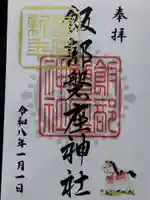 奉拝
飯部磐座神社
令和八年一月一日